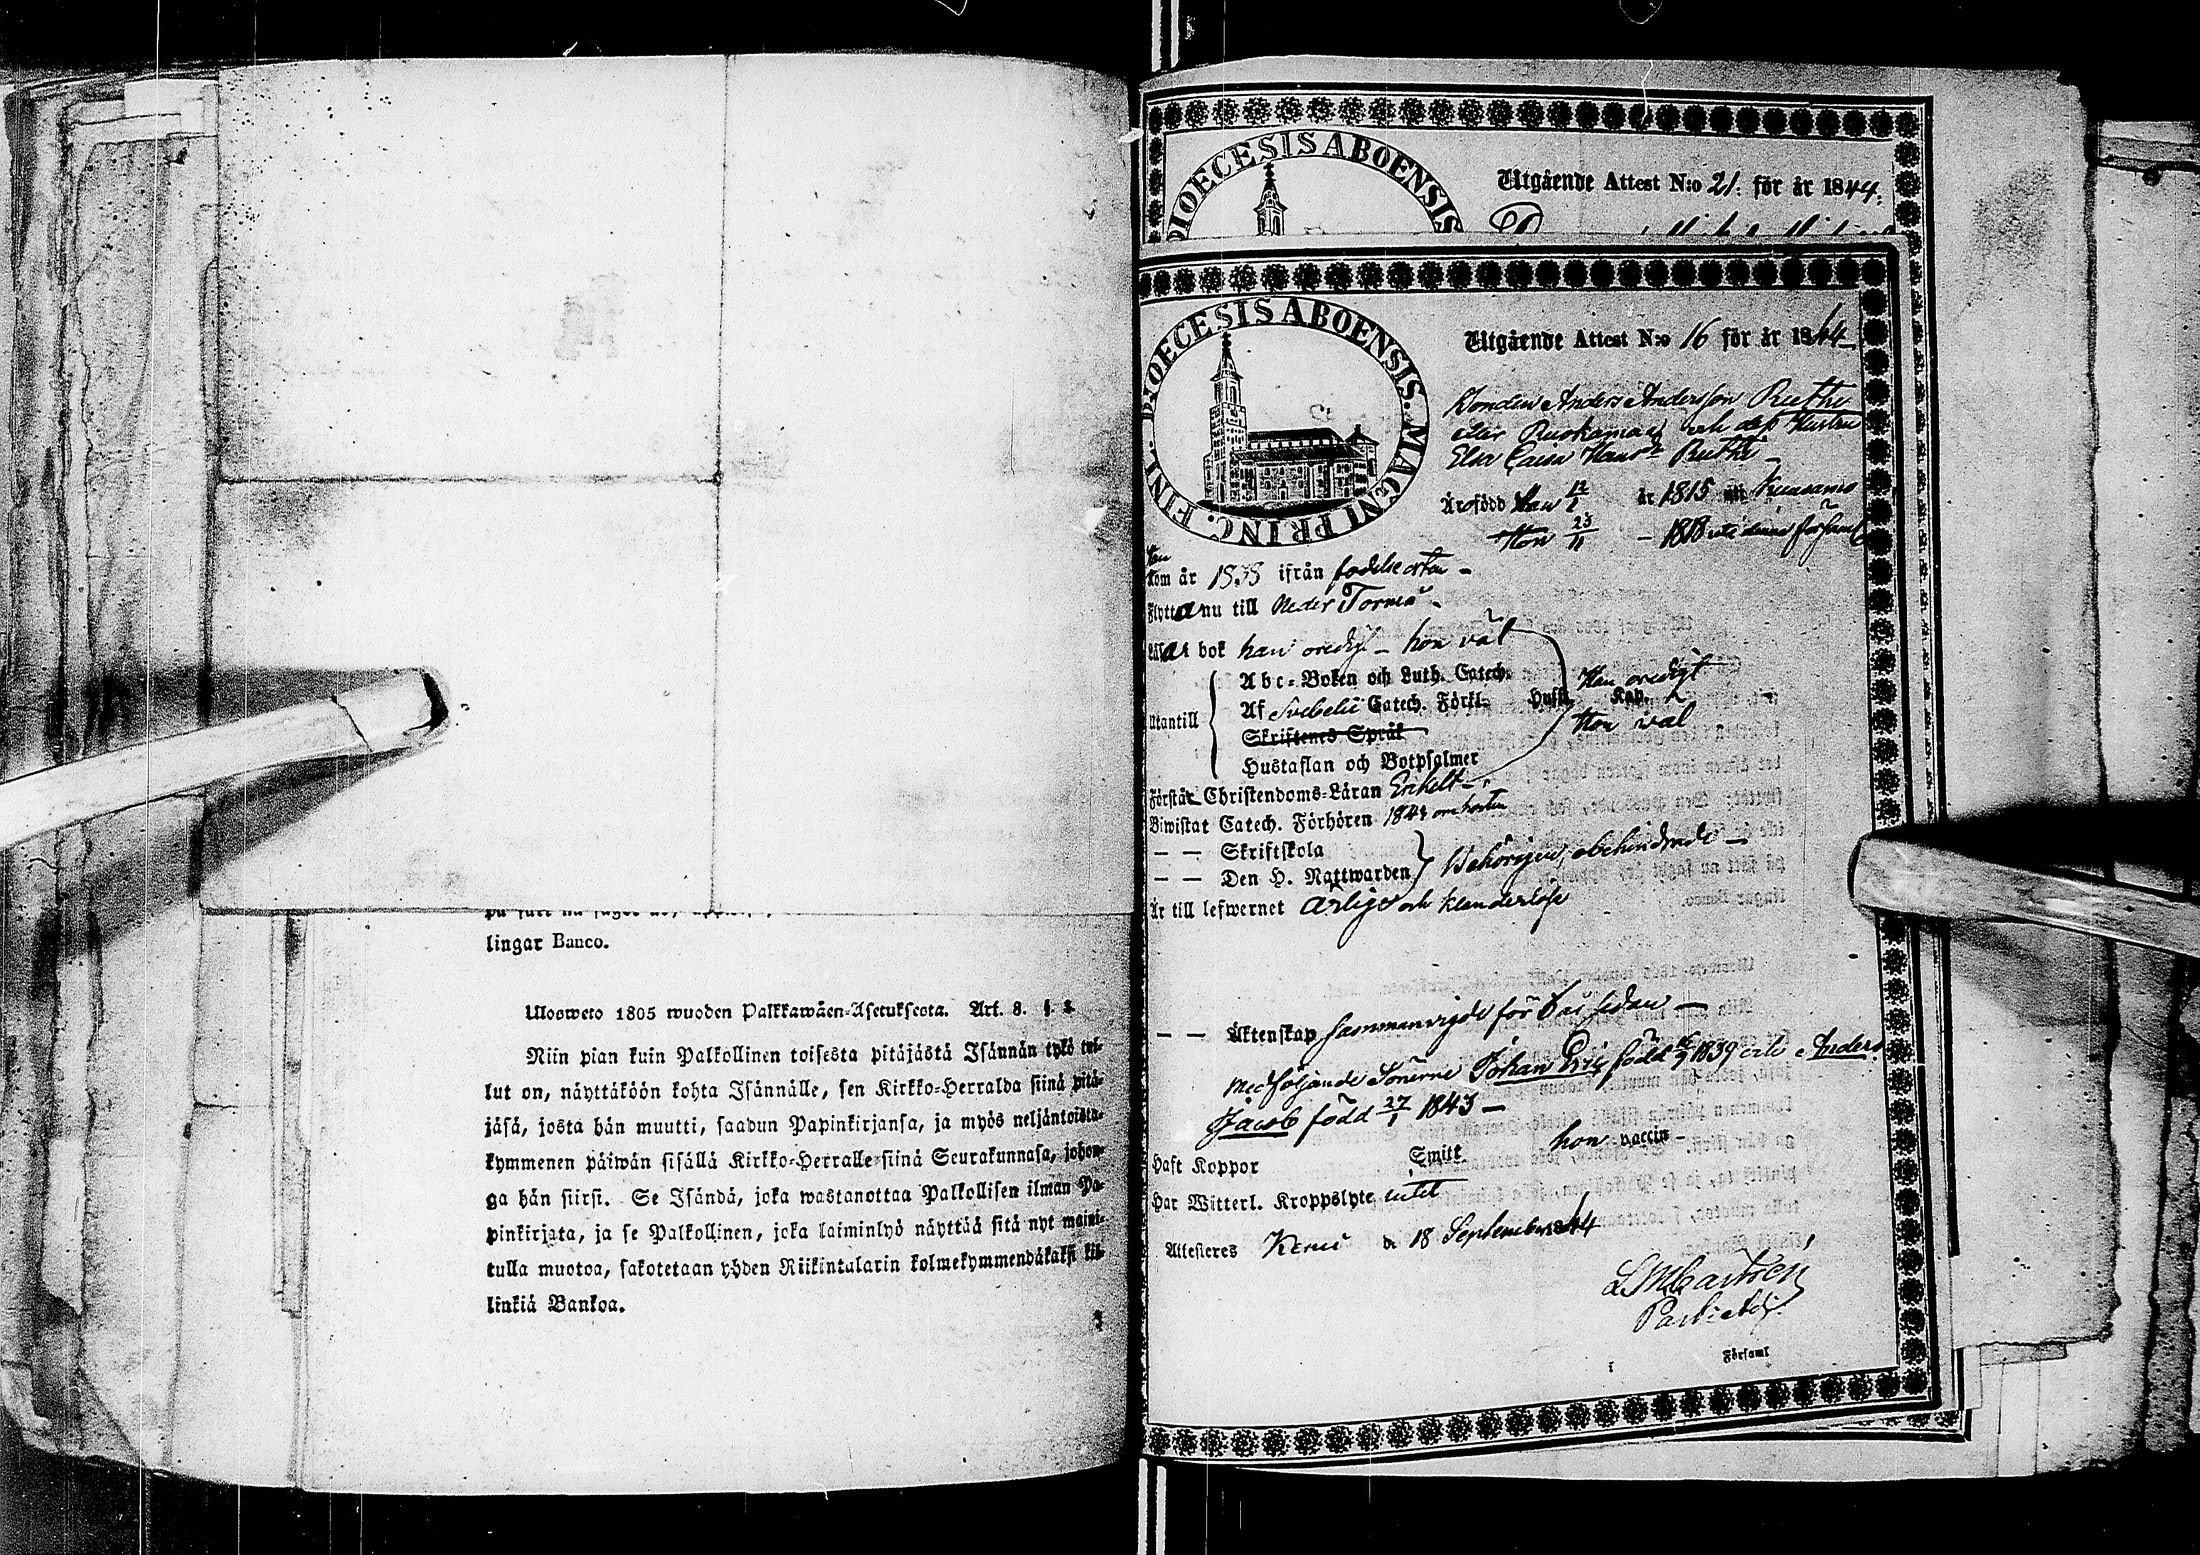 lingar Banco.
Ulosweto 1805 wuoden Palkkawäen-Asetuksesta. Art. 8. §. 2.
Niin pian kuin Palkollinen toisesta pitäjästä Isännän tykö tul-
lut on, näyttäköön kohta Isännälle, sen Kirkko-Herralda siinä pitä-
jäsä, josta hän muutti, saadun Papinkirjansa, ja myös neljäntoista-
kymmenen päiwän sisällä Kirkko-Herralle siinä Seurakunnasa, johon-
ga hän siirsi. Se Isändä, joka wastanottaa Palkollisen ilman Pa-
pinkirjata, ja se Palkollinen, joka laiminlyö näyttää sitä nyt maini-
tulla muotoa, sakotetaan yhden Riikintalarin kolmekymmendäkaksi kil-
linkiä Bankoa.
DIOECESIS ABOENSIS
Utgående Attest N:o 21. för år 1844.
DIOECESIS ABOENSIS. MAGNI PRINC. FINL.
Utgående Attest N:o 16 för år 1844
Bonden Anders Andersson Ruthi
eller Ruokamaa och dess Hustru
Elsa Caisa Hans Ruthi
Äro född Han 12/1 år 1815 uti Kuusamo
Hon 23/11 – 1818 uti denna församl
Han
kom år 1838 ifrån födelseorten –
Flytta nu till Neder Torneå
Läsa i bok han oredigt – hon väl
Abc-Boken och Luth. Catech.
Utantill Af Svebelii Catech. Förkl. Hust. Kap. Han oredigt Hon väl
Skriftenes Språk
Hustaflan och Botpsalmer
Förstå Christendoms-Läran Enkelt
Biwistat Catech. Förhören 1844
— — Skriftskola
— — Den H. Nattwarden Behörigen, obehindrade –
Är till lefwernet ärlige och klanderlöse
— — Äktenskap sammanvigde för 6 år sedan —
Medföljande Sönerne Johan Eric född 1839 och Anders
Jacob född 27/1 1843 —
Haft Koppor Smitt hon vaccin –
Har Witterl. Kroppslyte intet
Attesteres Kemi d. 18 September 1844
L M Castrén
Past. Adj.
i Församl